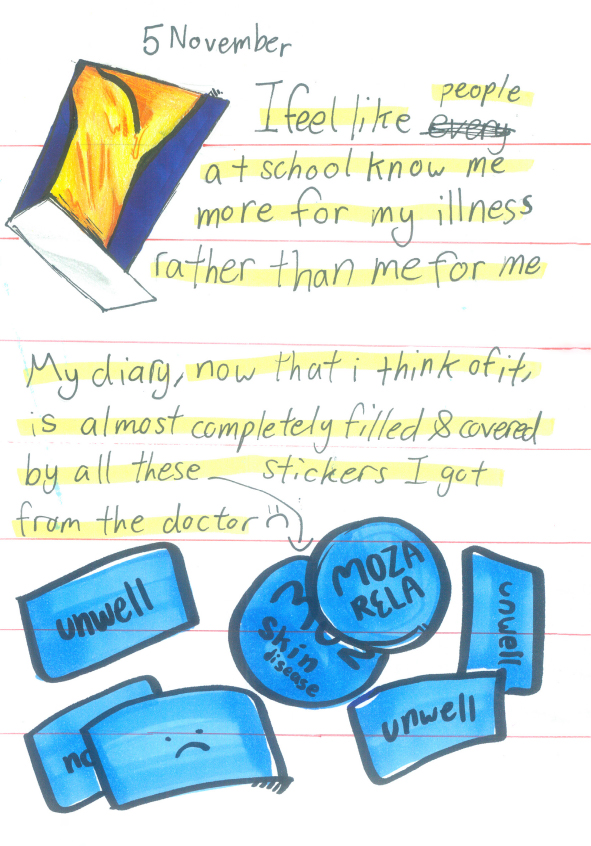 5 November
people
I feel like every
at school know me
more for my illness
rather than me for me
My diary, now that i think of it,
is almost completely filled & covered
by all these stickers I got
from the doctor :(
MOZA
RELA
unwell
unwell
skin
disease
unwell
no